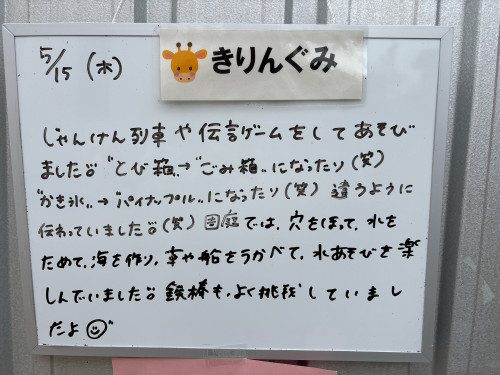 5/15 (木)
きりんぐみ
じゃんけん列車や伝言ゲームをしてあそび
ました。"とび箱"→"ごみ箱"になったり(笑)
"かき氷"→"パイナップル"になったり(笑) 違うように
伝わっていました。(笑) 園庭では、穴をほって、水を
ためて、海を作り、車や船をうかべて、水あそびを楽
しんでいました。鉄棒も、よく挑戦していまし
たよ